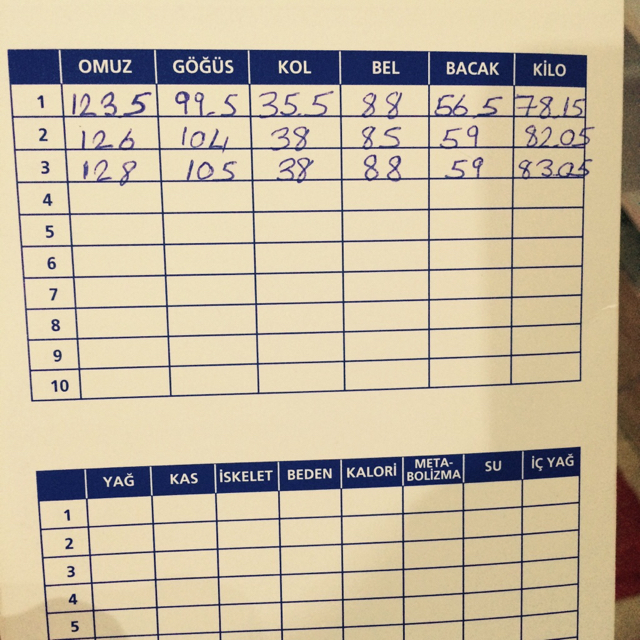 OMUZ GÖĞÜS KOL BEL BACAK KİLO
1 123.5 99.5 35.5 88 56.5 78.15
2 126 104 38 85 59 82.05
3 128 105 38 88 59 83.05
4
5
6
7
8
9
10
YAĞ KAS İSKELET BEDEN KALORİ META-BOLİZMA SU İÇ YAĞ
1
2
3
4
5